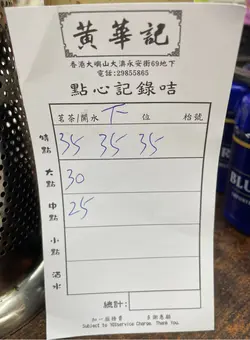 黃華記
香港大嶼山大澳永安街69地下
電話:29855865
點心記錄咭
茗茶/開水 下 位 枱號
特點 35 35 35
大點 30
中點 25
小點
酒水
總計:
加一服務費 多謝惠顧
Subject to 10%service Charge. Thank You.
BLU